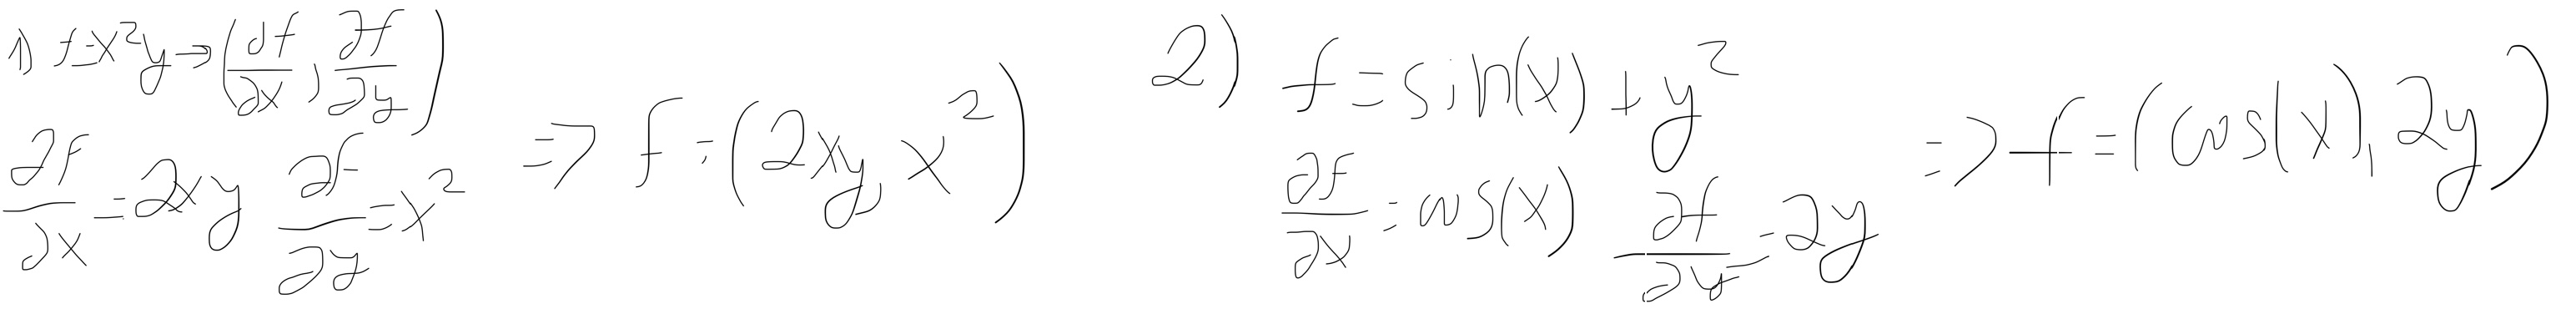 1) f=x²y→(∂f/∂x, ∂f/∂y)
∂f/∂x=2xy ∂f/∂y=x² => f=(2xy, x²)
2) f=sin(x)+y²
∂f/∂x=cos(x) ∂f/∂y=2y => f=(cos(x), 2y)